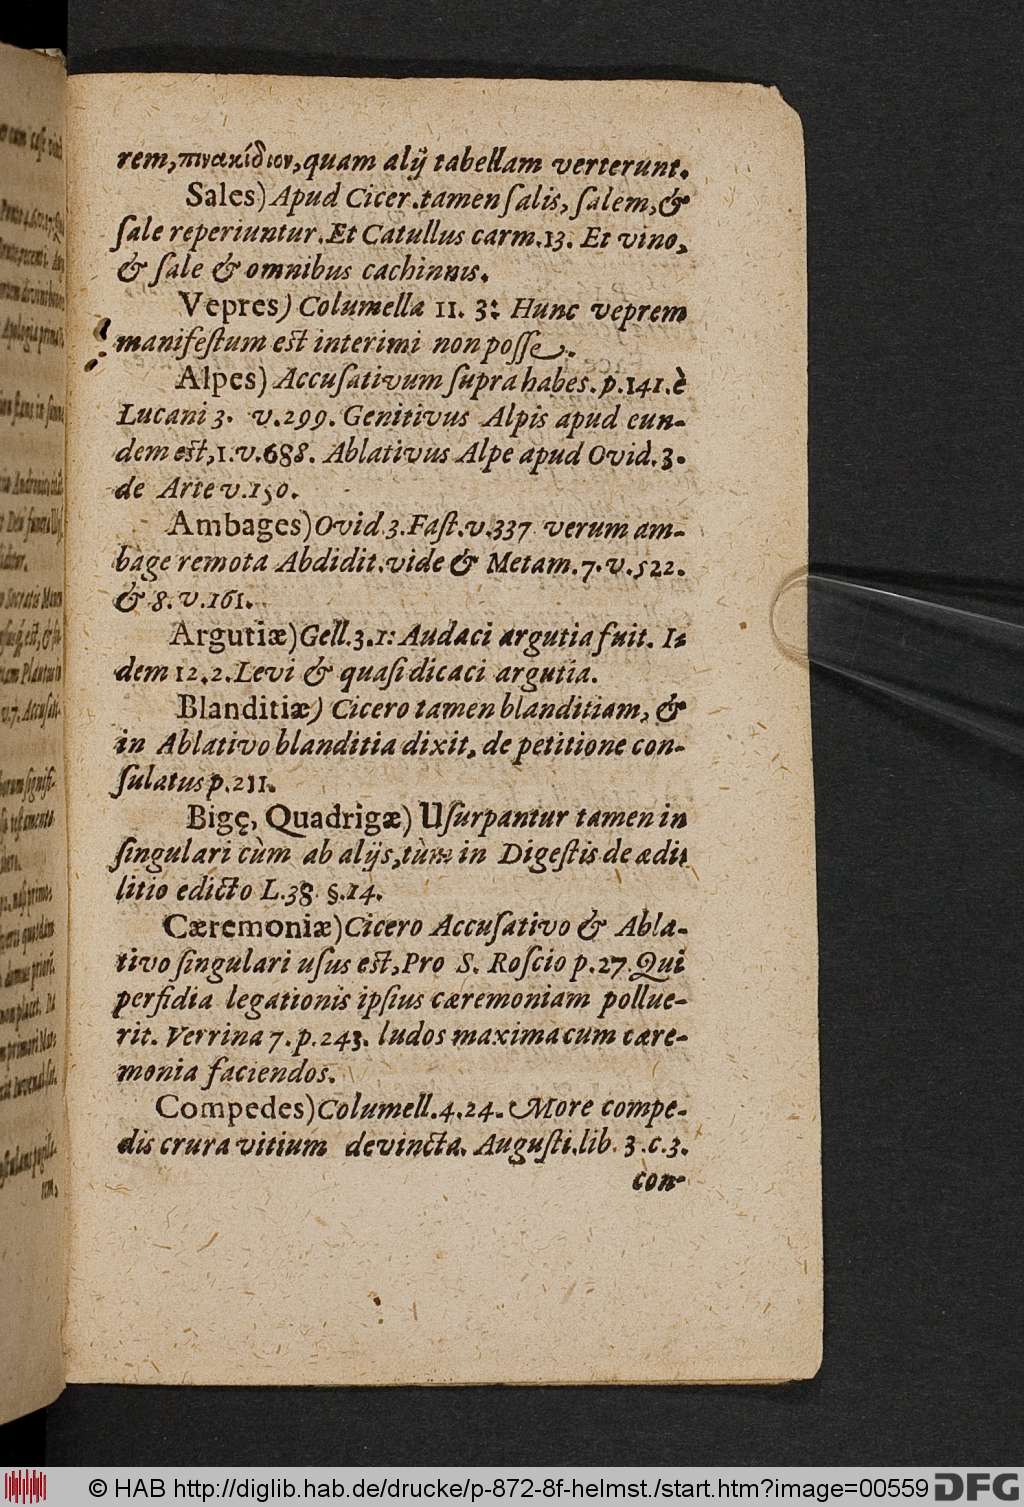 rem, πινακίδιον, quam alij tabellam verterunt.
Sales) Apud Cicer. tamen ſalis, ſalem, &
ſale reperiuntur. Et Catullus carm. 13. Et vino,
& ſale & omnibus cachinnis.
Vepres) Columella 11. 3: Hunc veprem
manifeſtum eſt interimi non poſſe.
Alpes) Accuſativum ſupra habes. p. 141. è
Lucani 3. v. 299. Genitivus Alpis apud eun-
dem eſt, 1. v. 688. Ablativus Alpe apud Ovid. 3.
de Arte v. 150.
Ambages) Ovid. 3. Faſt. v. 337 verum am-
bage remota Abdidit. vide & Metam. 7. v. 522.
& 8. v. 161.
Argutiæ) Gell. 3. 1: Audaci argutia fuit. I-
dem 12. 2. Levi & quaſi dicaci argutia.
Blanditiæ) Cicero tamen blanditiam, &
in Ablativo blanditia dixit, de petitione con-
ſulatus p. 211.
Bigę, Quadrigæ) Uſurpantur tamen in
ſingulari cùm ab alijs, tùm in Digeſtis de ædi
litio edicto L. 38 §. 14.
Cæremoniæ) Cicero Accuſativo & Abla-
tivo ſingulari uſus eſt, Pro S. Roſcio p. 27. Qui
perfidia legationis ipſius cæremoniam pollue-
rit. Verrina 7. p. 243. ludos maxima cum cære-
monia faciendos.
Compedes) Columell. 4. 24. More compe-
dis crura vitium devincta. Auguſti. lib. 3. c. 3.
con-
© HAB http://diglib.hab.de/drucke/p-872-8f-helmst./start.htm?image=00559
DFG